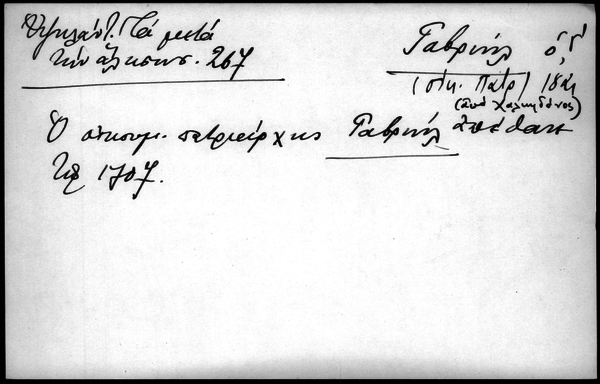 Ὑψηλάντ. Τὰ μετὰ
τὴν ἅλωσιν. 267
Γαβριὴλ ὁ Γʹ
(οἰκ. Πατρ) 18ος
(ἀπὸ Χαλκηδόνος)
Ὁ οἰκουμ. πατριάρχης Γαβριὴλ ἀπέθανε
τῷ 1707.